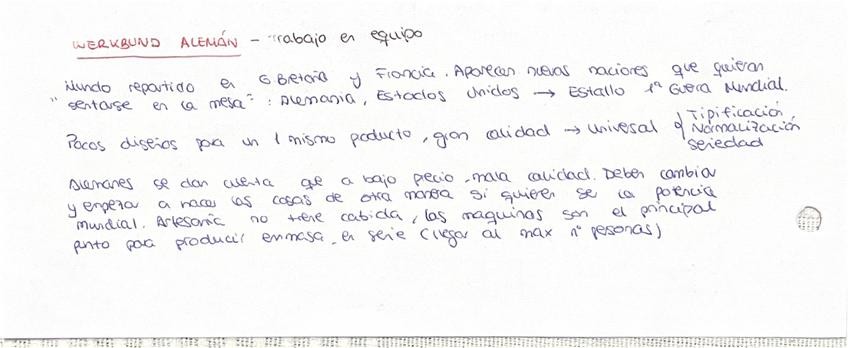 WERKBUND ALEMÁN - Trabajo en equipo
Mundo repartido en G Bretaña y Francia. Aparecen nuevas naciones que quieran
"sentarse en la mesa": Alemania, Estados Unidos → Estallo 1ª Guera Mundial.
Pocos diseños para un 1 mismo producto, gran calidad → universal
Tipificación
Normalización
Seriedad
Alemanes se dan cuenta que a bajo precio, mala calidad. Deben cambiar
y empezar a hacer las cosas de otra manera si quieren ser la potencia
mundial. Artesanía no tiene cabida, las maquinas son el principal
punto para producir en masa, en serie (llegar al max nº personas)